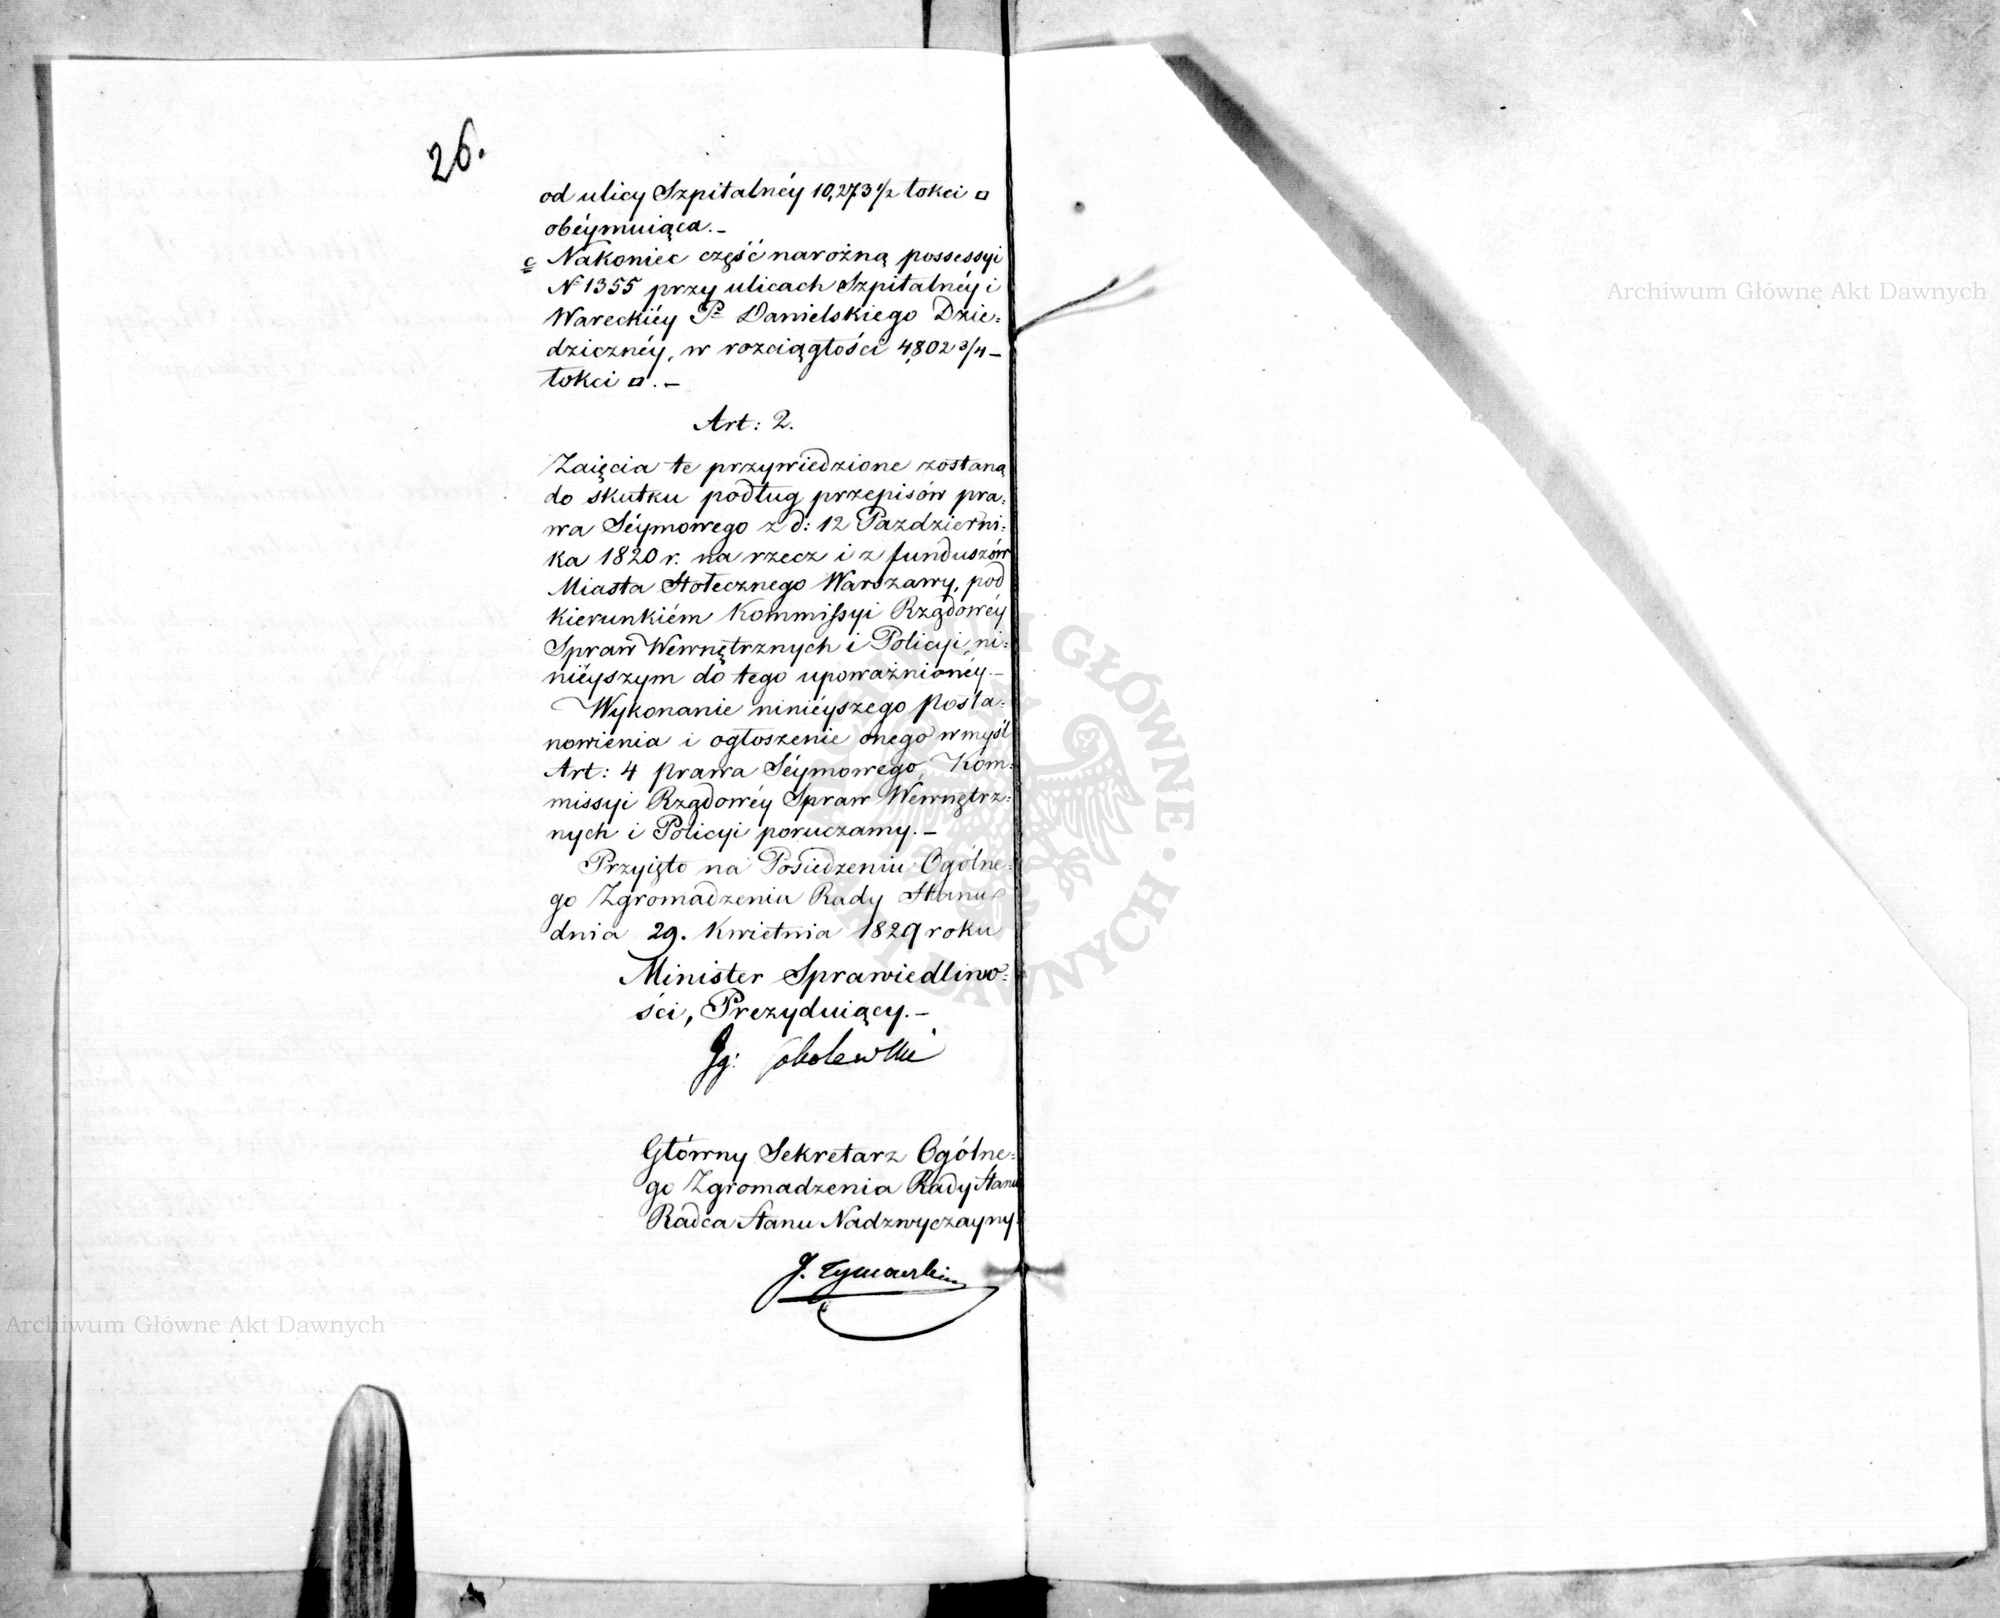 26.
od ulicy Szpitalnéy 10,273 1/2 łokci □
obéymuiąca.—
c Nakoniec część narożną possessyi
N 1355 przy ulicach Szpitalnéy i
Wareckiéy P. Danielskiego Dzie=
dzicznéy, w rozciągłości 4,802 3/4 —
łokci □.—
Art: 2.
Zaięcia te przywiedzione zostaną
do skutku podług przepisów pra=
wa Séymowego z d: 12 Pazdzierni=
ka 1820 r. na rzecz i z funduszów
Miasta Stołecznego Warszawy, pod
kierunkiém Kommissyi Rządowéy
Spraw Wewnętrznych i Policyi, ni=
niéyszym do tego upoważnionéy.—
Wykonanie ninieyszego posta=
nowienia i ogłoszenie onego w myśl
Art: 4 prawa Séymowego, Kom=
missyi Rządowéy Spraw Wewnętrz=
nych i Policyi poruczamy.—
Przyięto na Posiedzeniu Ogólne=
go Zgromadzenia Rady Stanu
dnia 29. Kwietnia 1829 roku
Minister Sprawiedliwo=
ści, Prezyduiący.—
Ig: Sobolewski
Główny Sekretarz Ogólne=
go Zgromadzenia Rady Stanu
Radca Stanu Nadzwyczayny.
J. Tymowski
Archiwum Główne Akt Dawnych
Archiwum Główne Akt Dawnych
ARCHIWUM GŁÓWNE AKT DAWNYCH